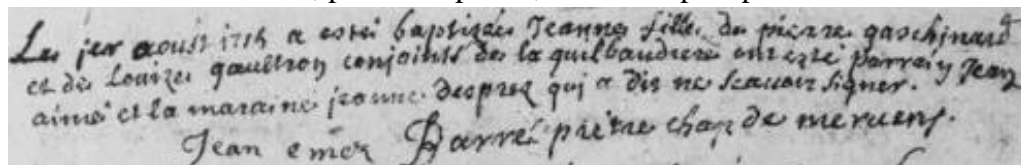 Le jer aoust 1715 a estéi baptizée Jeanne fille de pierre gaschinard
et de Louize gaultron conjoints de la guilbaudiere ont esté parrain Jean
aimé et la maraine jeanne Desprez qui a dis ne scauoir signer.
Jean emer Barré prêtre chap de meruent.